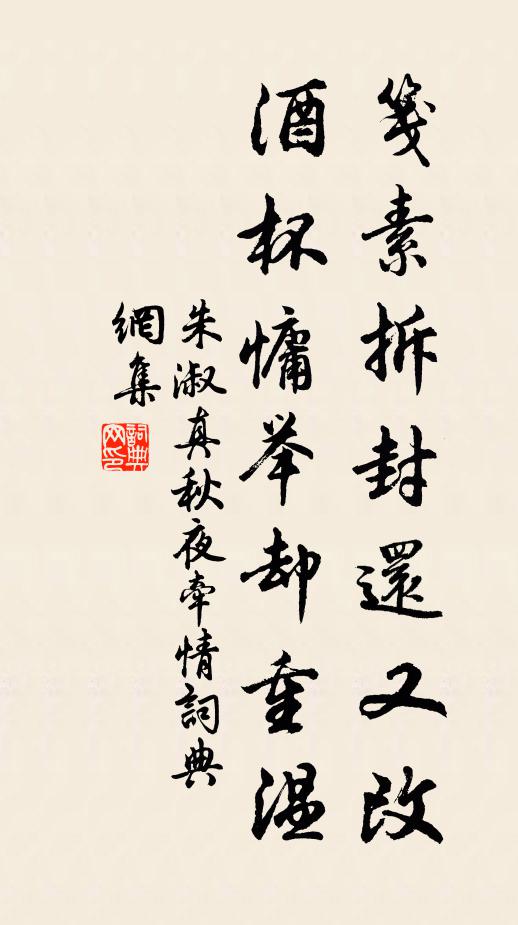 箋素拆封還又改
酒杯慵举却重温
朱淑真秋夜牽情詞典
網集
詞典
网印